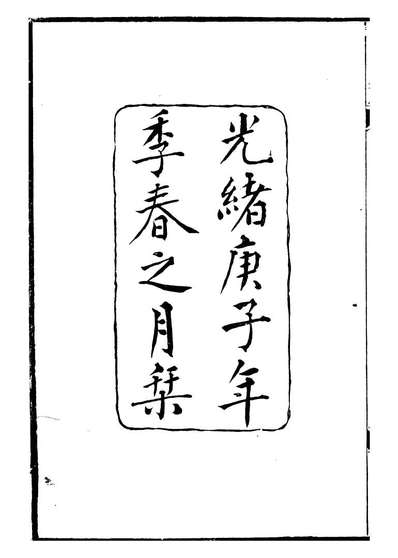 光緒庚子年
季春之月栞